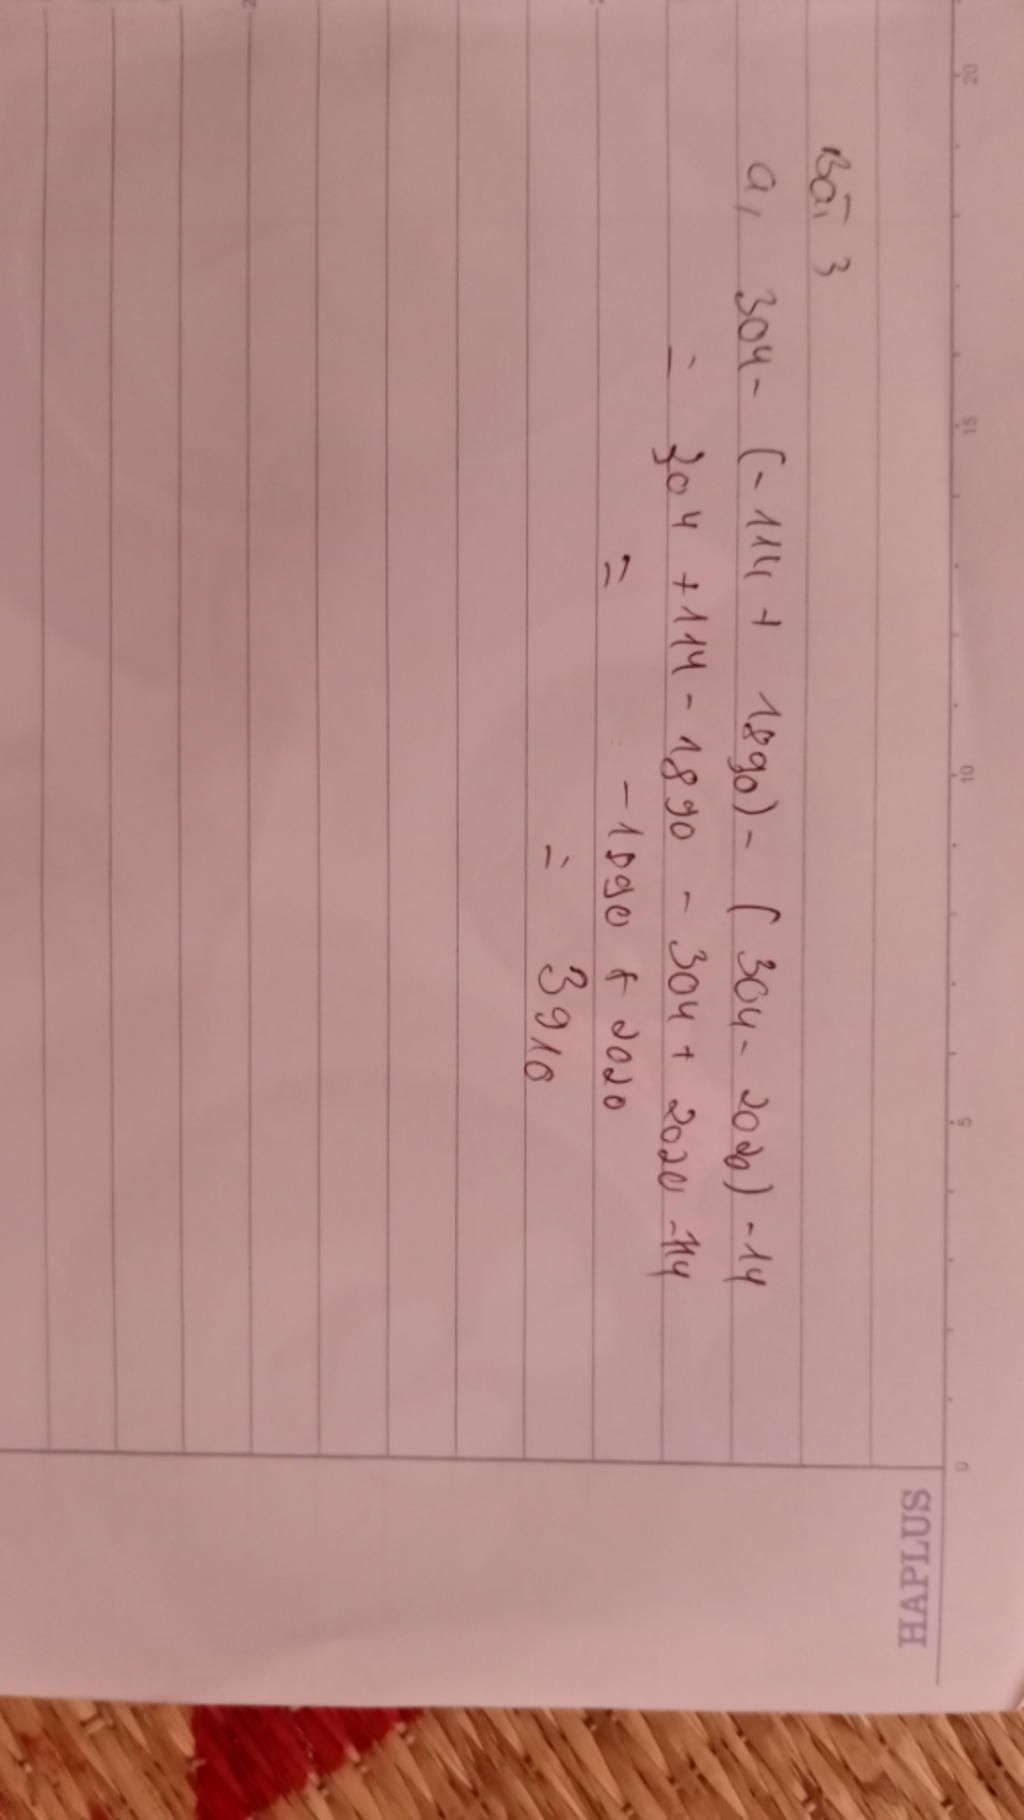 HAPLUS
20 15 10 5 0
Bài 3
a, 304 - (-114 + 1890) - (304 - 2020) - 14
= 304 + 114 - 1890 - 304 + 2020 - 114
= -1890 + 2020
= 3910